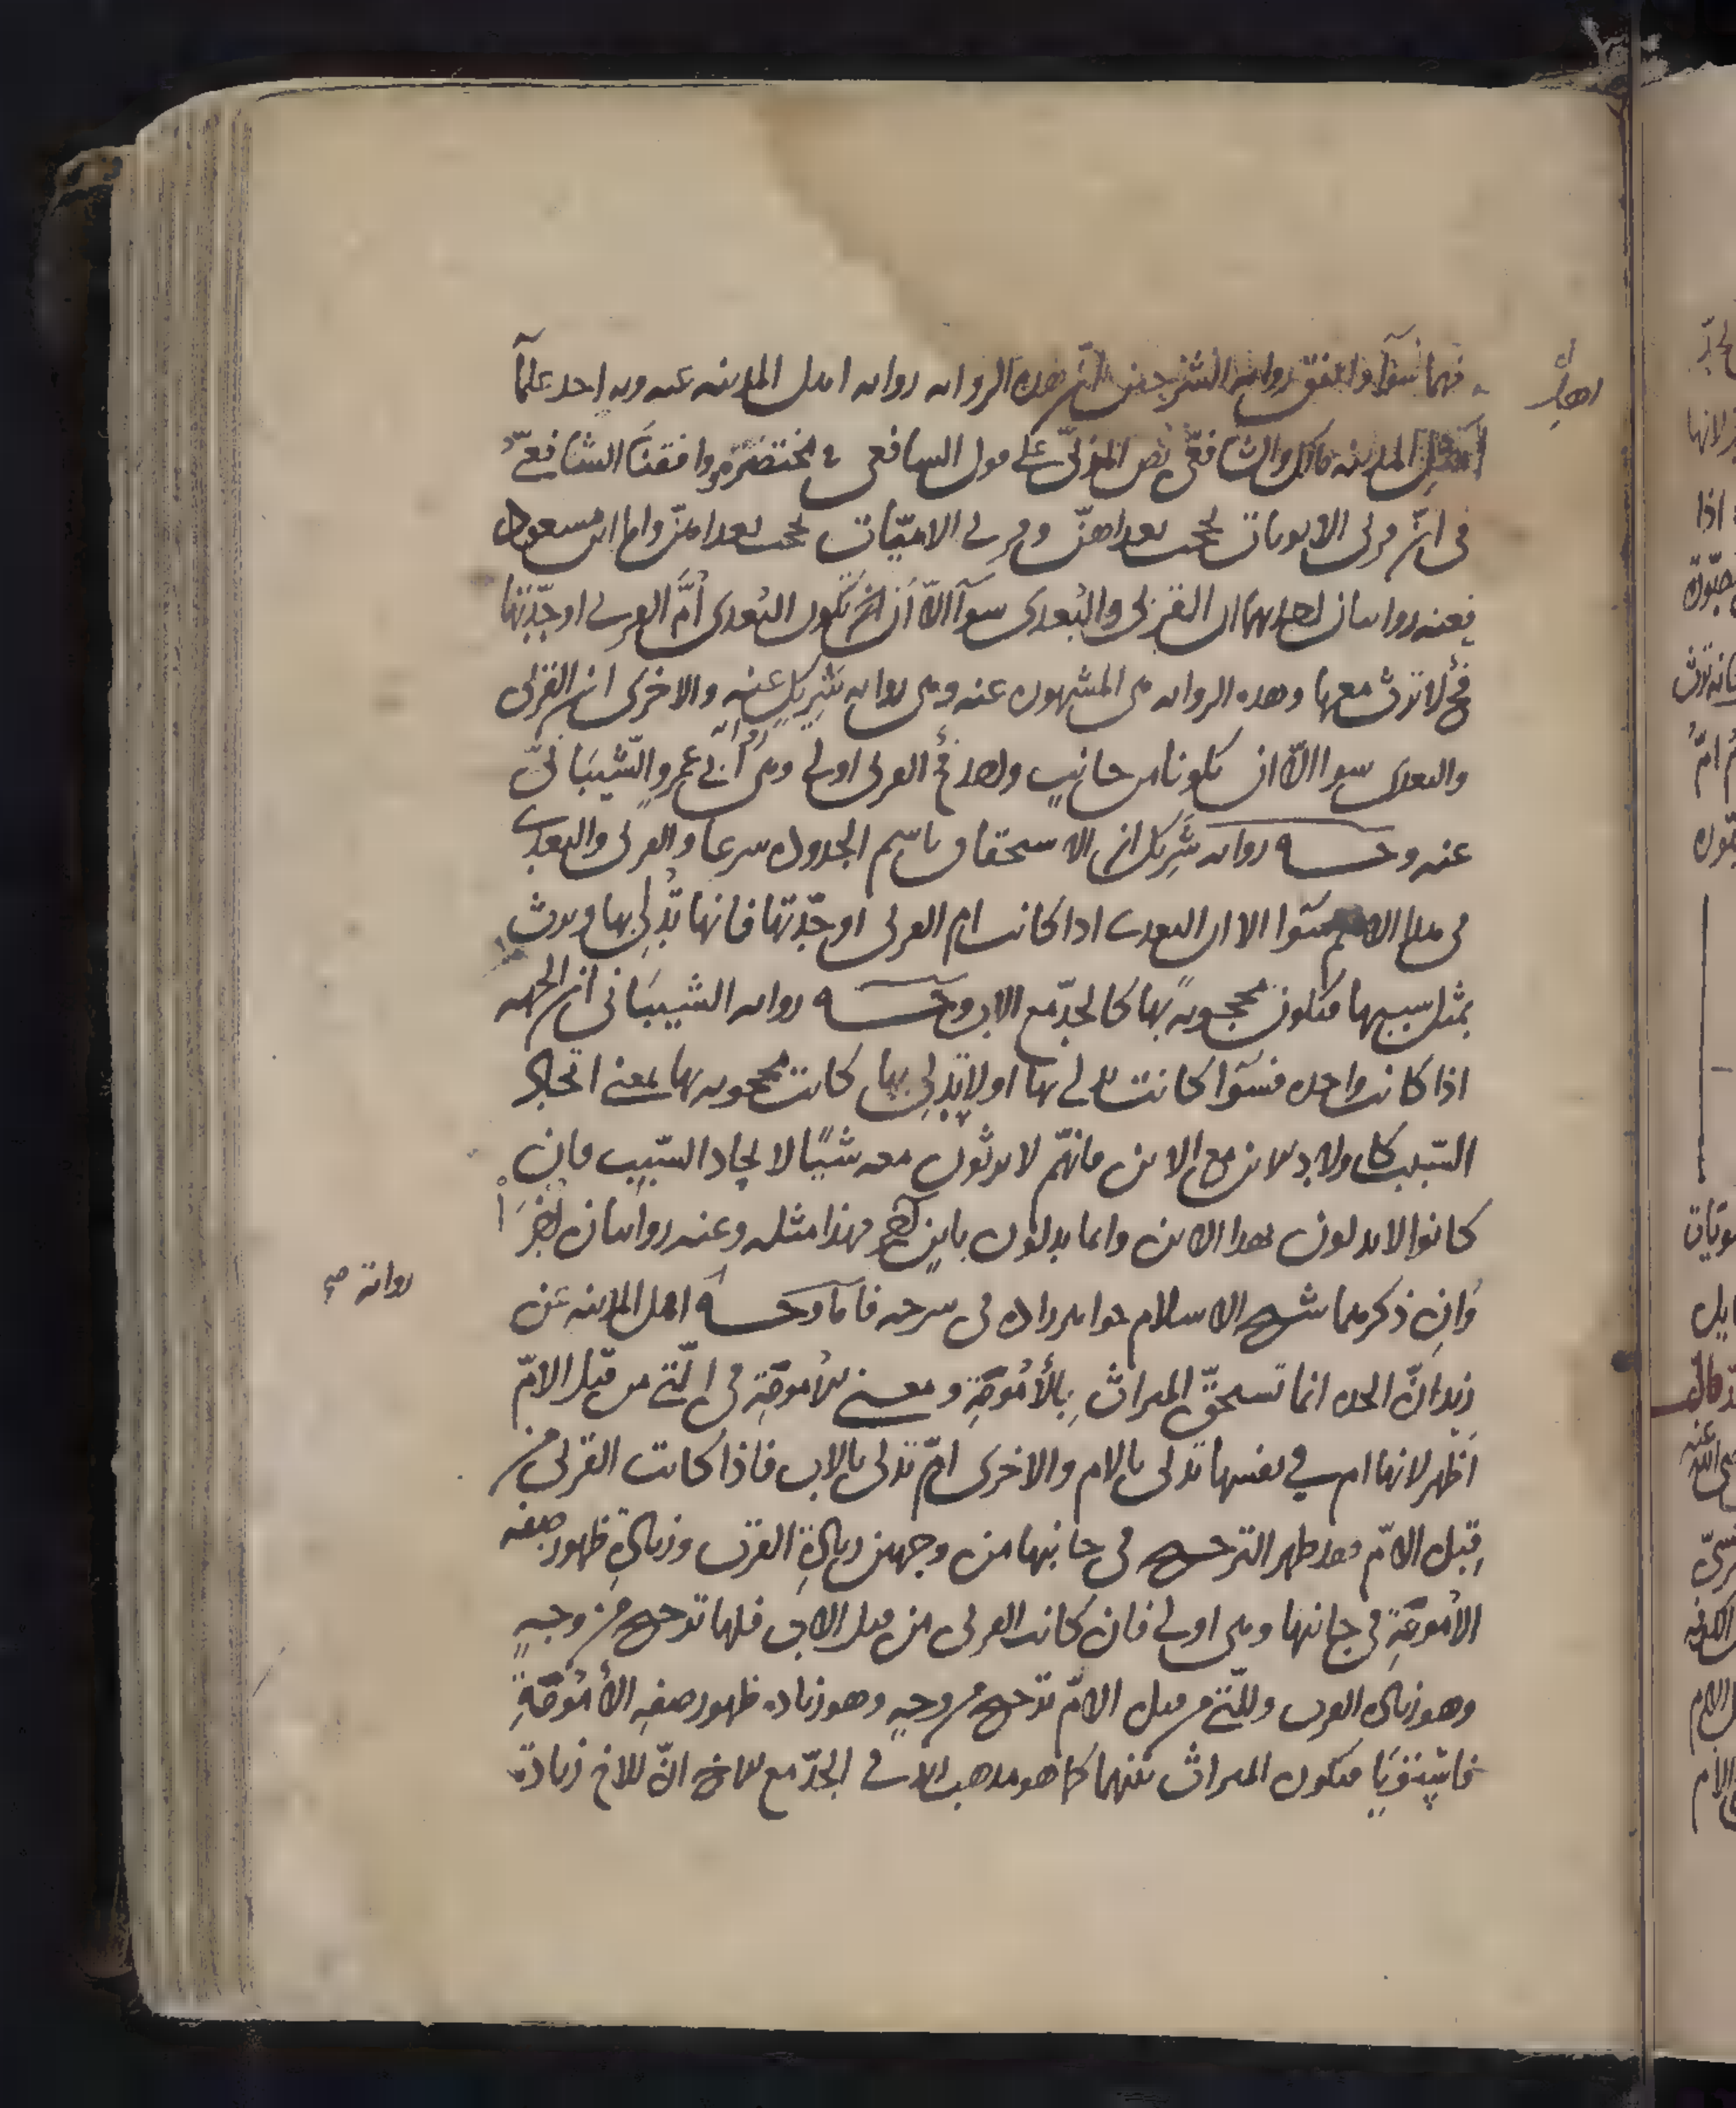 فهما سوآ واتفق رواية الشرحين انّ هده الرواىه رواىه اهل المدىىه عىه وبه احد علمآ
اهل المدينه مالك والشافعى نص المزنىّ على قول السافعى فى مختصره ووافقنا الشافعىّ
فى انّ قربى الابويات تحجب بعداهنّ وقربى الاميّات تحجب بعداهنّ واما ابن مسعود
فعنه رواىتان احدىهما ان القربى والبُعدى سوآ الّا اَن تكون البُعدى اُمَّ القربى او جدّتها
فح لا ترث معها وهده الرواىه هى المشهوره عنه وهى رواىه شَرِيكٍ عنه والاخرى ان القربى
والبعدى سوا الّا ان تكونا من جانبٍ واحد فح القربى اولى وهى رواية ابى عمرٍو الشّيبَانىّ
عنه وجـــه رواىه شَرِيك ان الاستحقاق باسم الجدوده سرعا والقربى والبعدى
فى هدا الاسم سَوا الا ان البعدى اذا كانت ام القربى او جدّتها فانها تُدلِى بها وترث
بمثل سببها فتكون محجوبةً بها كالجدّ مع الاب وجـــه رواىه الشيبَانى ان الجهه
اذا كانت واحده فسَوا كانت تدلى بها او لا تُدلِى بها كانت محجوبه بها لمعنى اتحاد
السّبب كاولاد الابن مع الابن فانهم لا يرثون معه شيئًا لاتحاد السّبب فان
كانوا لا يدلون بهدا الابن وانما يدلون بابنٍ اخر فهذا مثله وعنه رواىتان اُخرَ
وانِ ذكرهما شيخ الاسلام خواهرزاده فى شرحه فامّا وجـــه رواىة اهل المدىنه عن
زيدٍ انّ الجده انما تستحقّ الميراث بِالأُمُومَةِ ومعنى الاُمومَةِ فى الّتى من قبل الامّ
اَظهر لانها ام فى نفسها تدلى بالام والاخرى امّ تدلى بالاب فاذا كانت القربى من
قِبل الامّ فقد ظهر الترجيح فى جانبها من وجهين زيادةِ القرب وزيادةِ ظهور صفه
الاُمومَةِ فى جانبها وهى اولى فان كانت القربى من قبل الاب فلها ترجيح من وجهٍ
وهو زيادة القرب وللّتى من قبل الامّ ترجيح من وجهٍ وهو زيادة ظهور صفةِ الأُمُومَةِ
فاستَوَيَا فيكون الميراث بينهما كما هو مدهبه فى الجدّ مع الاخ انّ للاخ زيادة